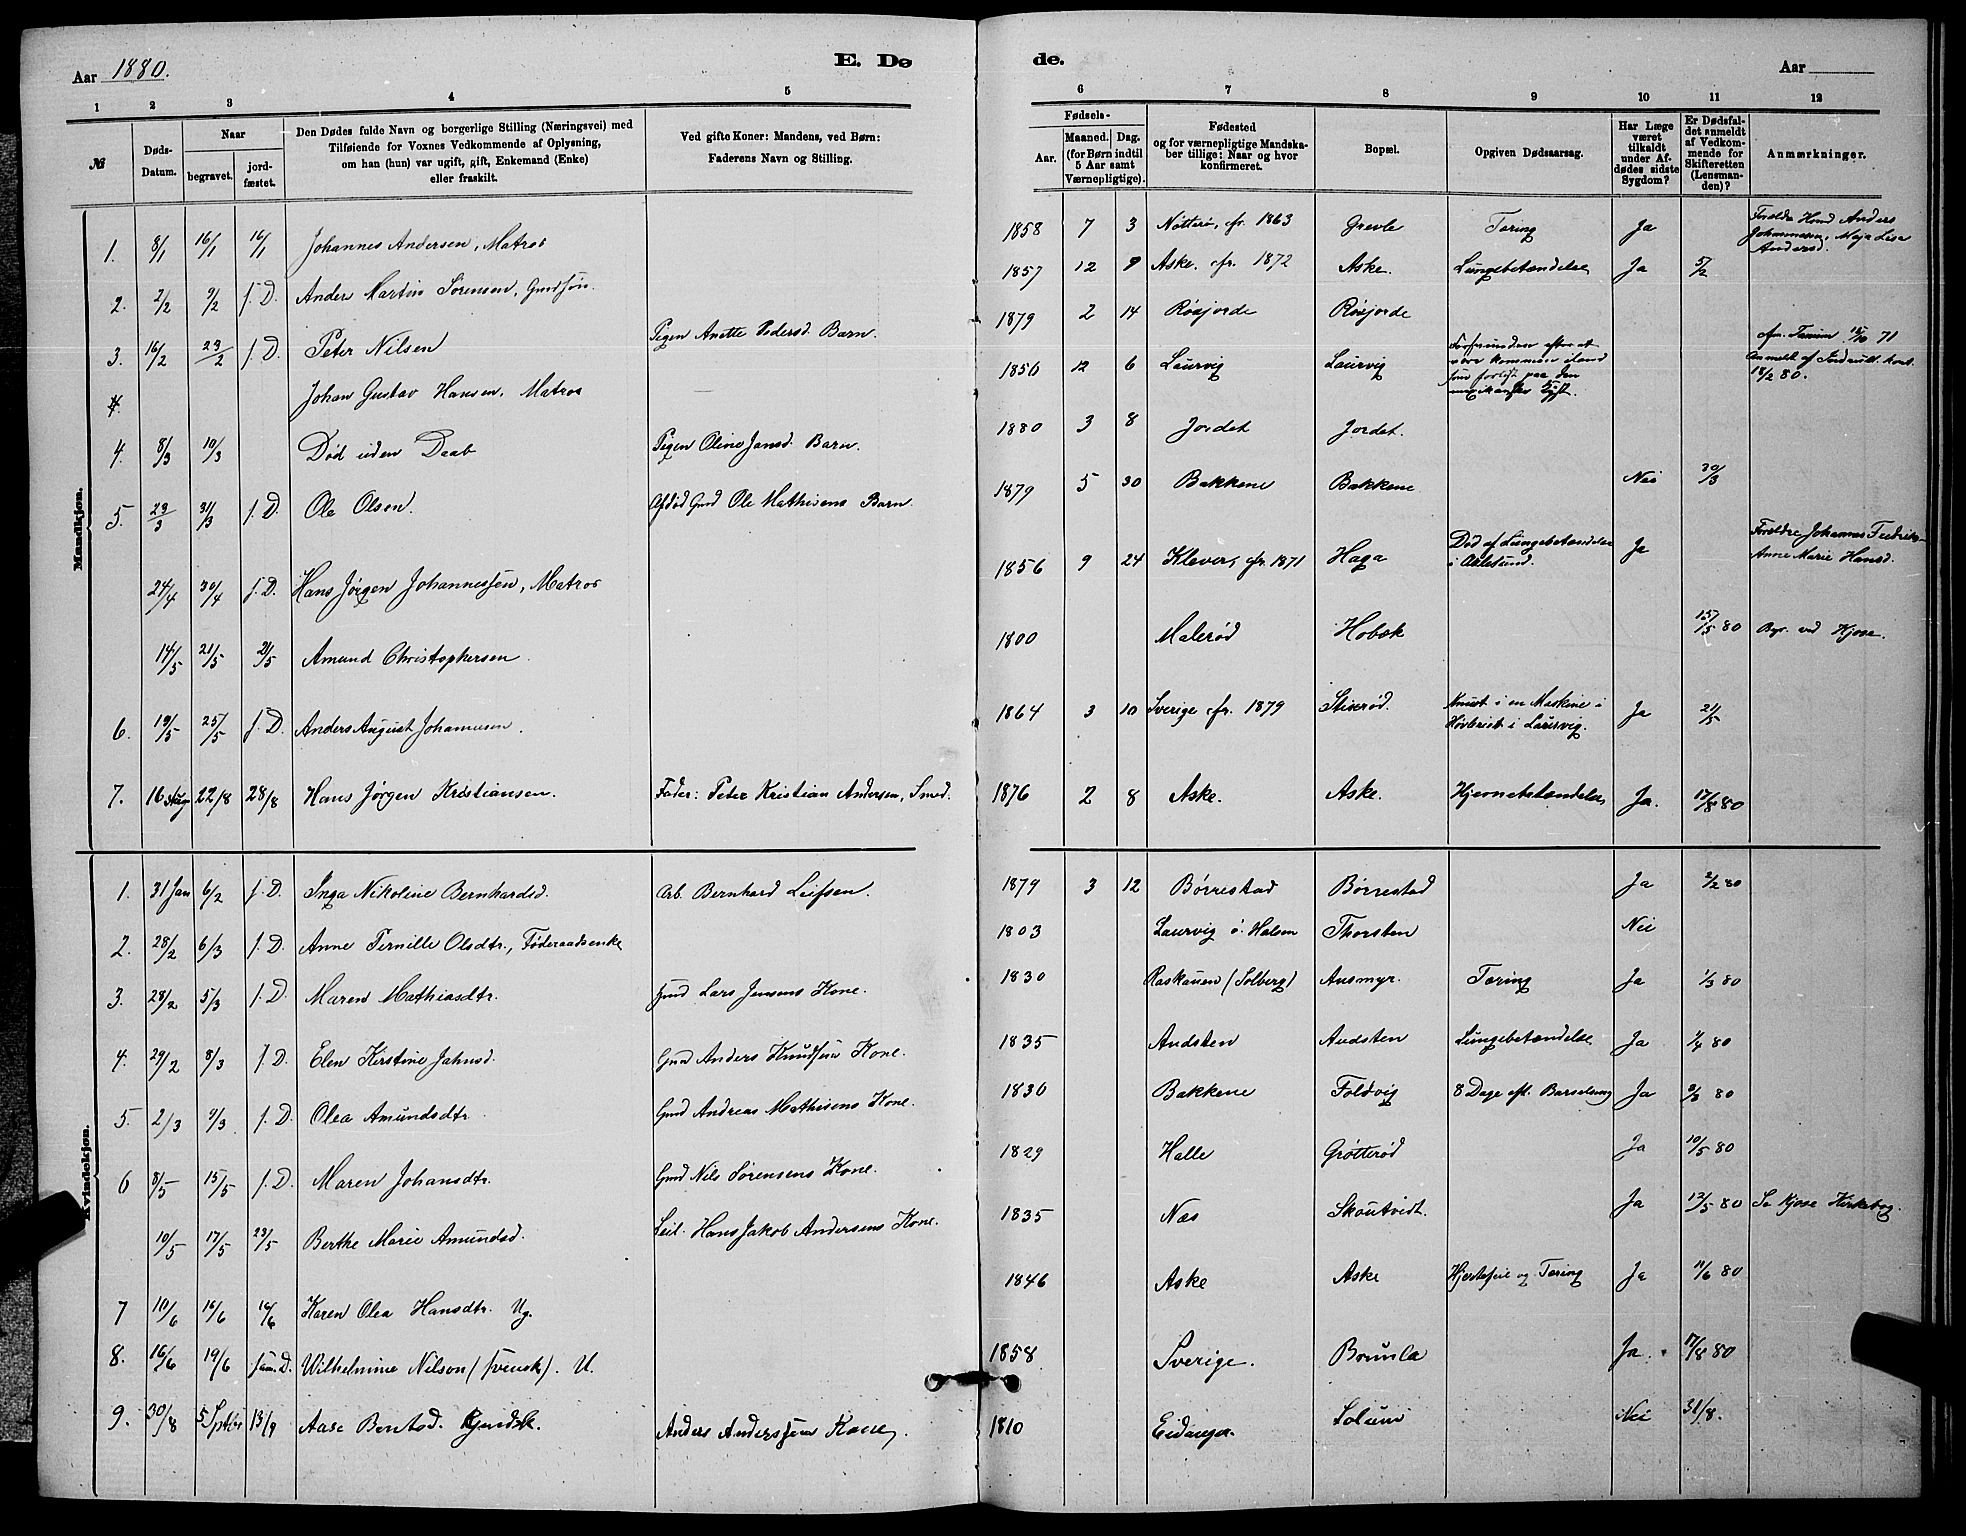 Aar 1880.
E. Dø
de.
Aar
1 2 3 4 5 6 7 8 9 10 11 12
№
Døds-Datum.
Naar
begravet.
jord-fæstet.
Den Dødes fulde Navn og borgerlige Stilling (Næringsvei) med
Tilføiende for Voxnes Vedkommende af Oplysning,
om han (hun) var ugift, gift, Enkemand (Enke)
eller fraskilt.
Ved gifte Koner: Mandens, ved Børn:
Faderens Navn og Stilling.
Fødsels-
Aar.
Maaned. Dag.
(for Børn indtil
5 Aar samt
Værnepligtige).
Fødested
og for værnepligtige Mandska-
ber tillige: Naar og hvor
konfirmeret.
Bopæl.
Opgiven Dødsaarsag.
Har Læge
været
tilkaldt
under Af-
dødes sidste
Sygdom?
Er Dødsfal-
det anmeldt
af Vedkom-
mende for
Skifteretten
(Lensman-
den)?
Anmærkninger.
Mandkjøn.
1. 8/1 16/1 16/1 Johannes Andersen, Matros 1858 7 3 Nøtterø, cfr. 1863 Grevle Tæring Ja Anders
Maja Lisa
Andersd.
2. 2/2 9/2 s. D. Anders Martin Sørensen, Gmdsøn. 1857 12 9 Aske. cfr. 1872 Aske. Lungebetændelse Ja 5/2
3. 16/2 23/2 s. D. Peter Nilsen Pigen Anette Pedersd. Barn. 1879 2 14 Røsjorde Røsjorde
4. Johan Gustav Hansen, Matros 1856 12 6 Laurvig Laurvig efter at
være kommen iland
paa den
71
Anmeldt af
18/2 80.
4. 8/3 10/3 Død uden Daab Pigen Oline Jansd. Barn. 1880 3 8 Jordet Jordet.
5. 23/3 31/3 s. D. Ole Olsen. Afdød Gmd Ole Mathisens Barn. 1879 5 30 Bakkene Bakkene Nei 30/3
24/4 30/4 s. D. Hans Jørgen Johannessen, Matros 1856 9 24 Klever, cfr. 1871 Haga Død af Lungebetændelse
i Aalesund. Ja Forældre Johannes
Anne Marie Hansd.
14/5 21/5 21/5 Amund Christophersen. 1800 Malerød Hobæk 15/5 80 ved Kjose.
6. 19/5 25/5 s. D. Anders August Johannesen. 1864 3 10 Sverige cfr. 1879 Stiverød. Knust i en Maskine i
Høvleriet i Laurvig. Ja 21/5
7. 16 Aug 22/8 28/8 Hans Jørgen Kristiansen. Fader: Peter Kristian Andersen, Smed. 1876 2 8 Aske. Aske. Hjernebetændelse Ja. 17/8 80
Kvindekjøn.
1. 31 Jan 6/2 s. D. Inga Nikoline Bernhardsd. Arb. Bernhard Leifsen. 1879 3 12 Børrestad Børrestad Ja 2/2 80
2. 28/2 6/3 s. D. Anne Pernille Olsdtr., Føderaadsenke 1803 Laurvig ø. Halsen Thorsten Nei
3. 28/2 5/3 s. D. Maren Mathiasdtr. Gmd Lars Jensens Kone. 1830 Raskauen (Solberg) Ausmyr. Tæring Ja 1/3 80
4. 29/2 8/3 s. D. Elen Kirstine Jahnsd. Gmd Anders Knudsens Kone. 1835 Andsten Andsten Lungebetændelse Ja 1/4 80
5. 2/3 9/3 s. D. Olea Amundsdtr. Gmd Andreas Mathisens Kone. 1830 Bakkene Foldvig 8 Dage eft. Barselseng Ja 2/3 80
6 8/5 15/5 s. D. Maren Johansdtr. Gmd Nils Sørensens Kone. 1829 Halle Grøtterød Ja 10/5 80
10/5 17/5 23/5 Berthe Marie Amundsd. Leil. Hans Jakob Andersens Kone. 1835 Næs Skoutvidt. Ja 12/5 80 Se Kjose Kirkebog.
7 10/6 16/6 16/6 Karen Olea Hansdtr. Ug. 1846 Aske Aske Hjertefeil og Tæring Ja 11/6 80
8. 16/6 19/6 sam. D. Wilhelmine Nilson (svensk). U. 1858 Sverige. Brunla Ja. 17/8 80
9. 30/8 5 Septbr 13/9 Aase Bentsd. Anders Anderssens Kone. 1810 Eidanger Solum Nei 31/8.